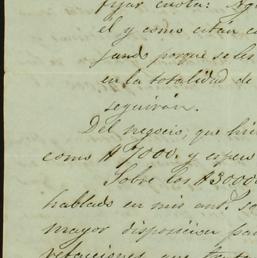 fijar cuota:
el y como están
sando porque se les
en la totalidad de
seguirán.
Del negocio, que
como $7000. y espero
Sobre los $30000
hablado en mis ant.
mayor disposicion pa
relaciones que